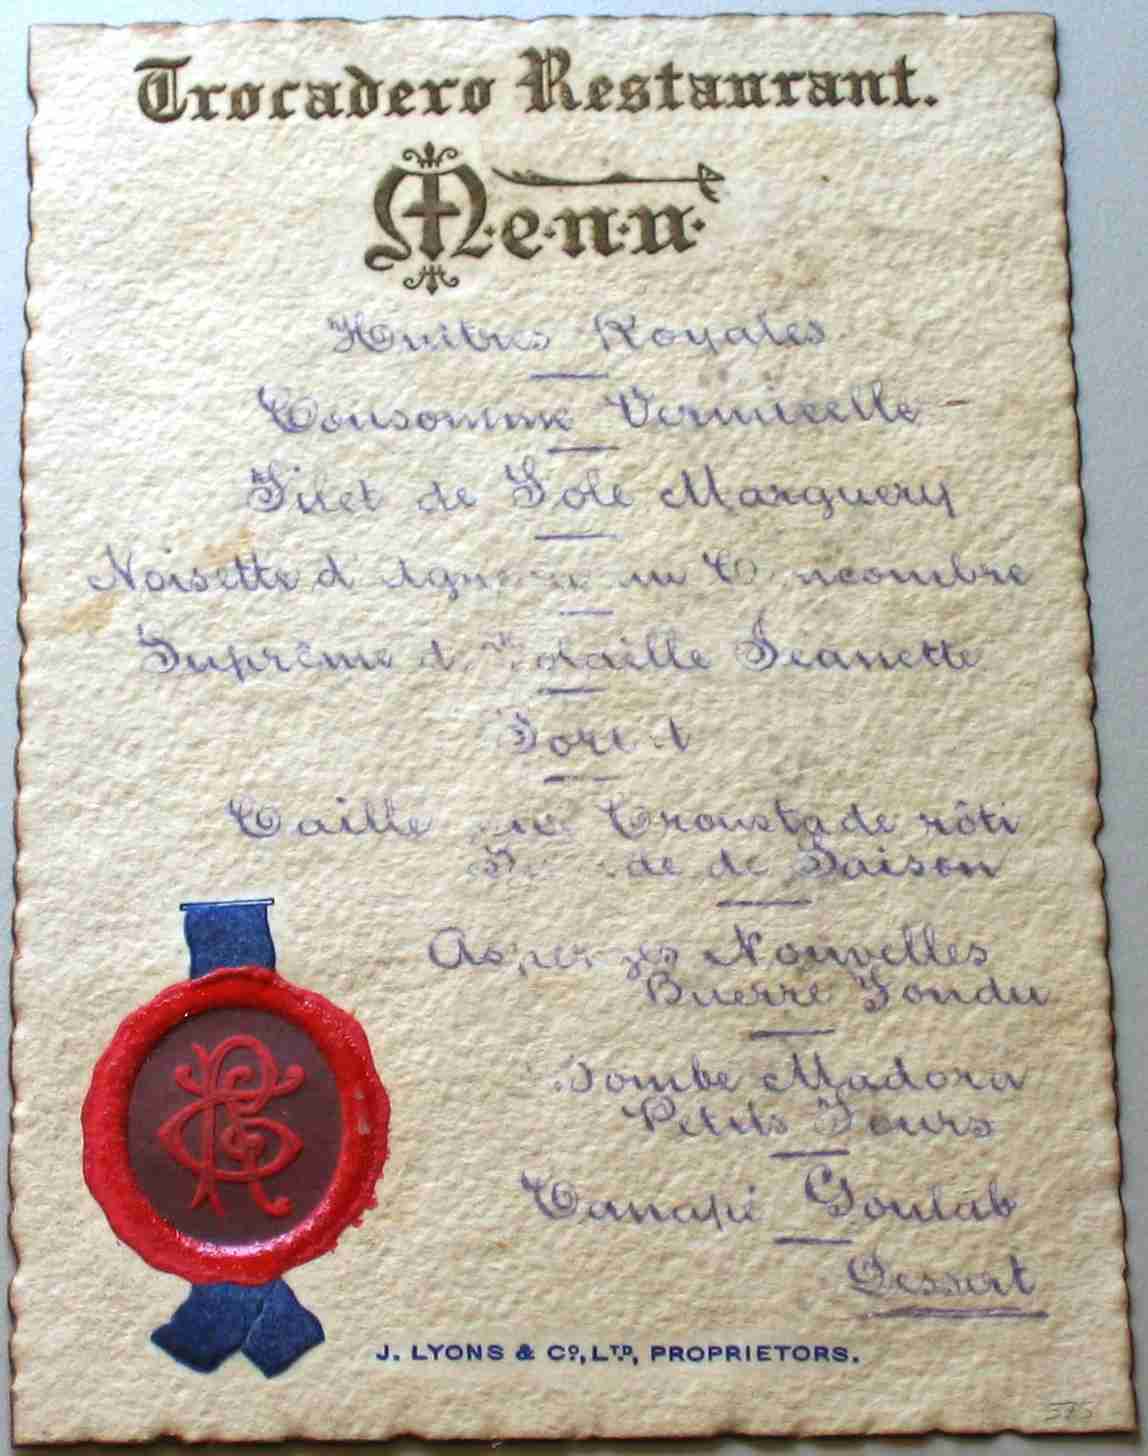 Trocadero Restaurant.
Menu
Huitres Royales
Consomme Vermicelle
Filet de Sole Marguery
Noisette d'Agneau au Concombre
Suprême de Volaille Jeanette
Sorbet
Caille en Croustade rôti
Salade de Saison
Asperges Nouvelles
Buerre Fondu
Bombe Madora
Petits Fours
Canapé Goulab
Dessert
J. LYONS & Co, LTD, PROPRIETORS.